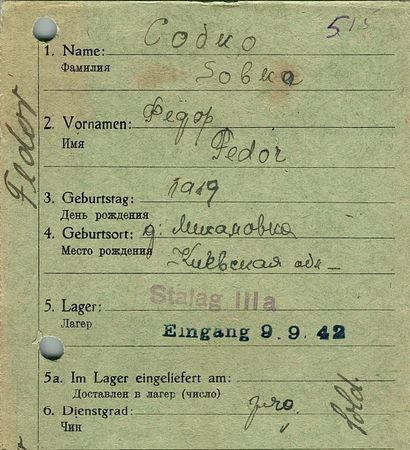 515
1. Name: Собко
Фамилия
Sobko
2. Vornamen: Федор
Имя
Fedor
3. Geburtstag: 1919
День рождения
4. Geburtsort: д. Михаловка
Место рождения Киевская обл
5. Lager: Stalag IIIa
Лагер Eingang 9. 9. 42
5a. Im Lager eingeliefert am:
Доставлен в лагер (число)
6. Dienstgrad:
Чин
Sold.
Fedor